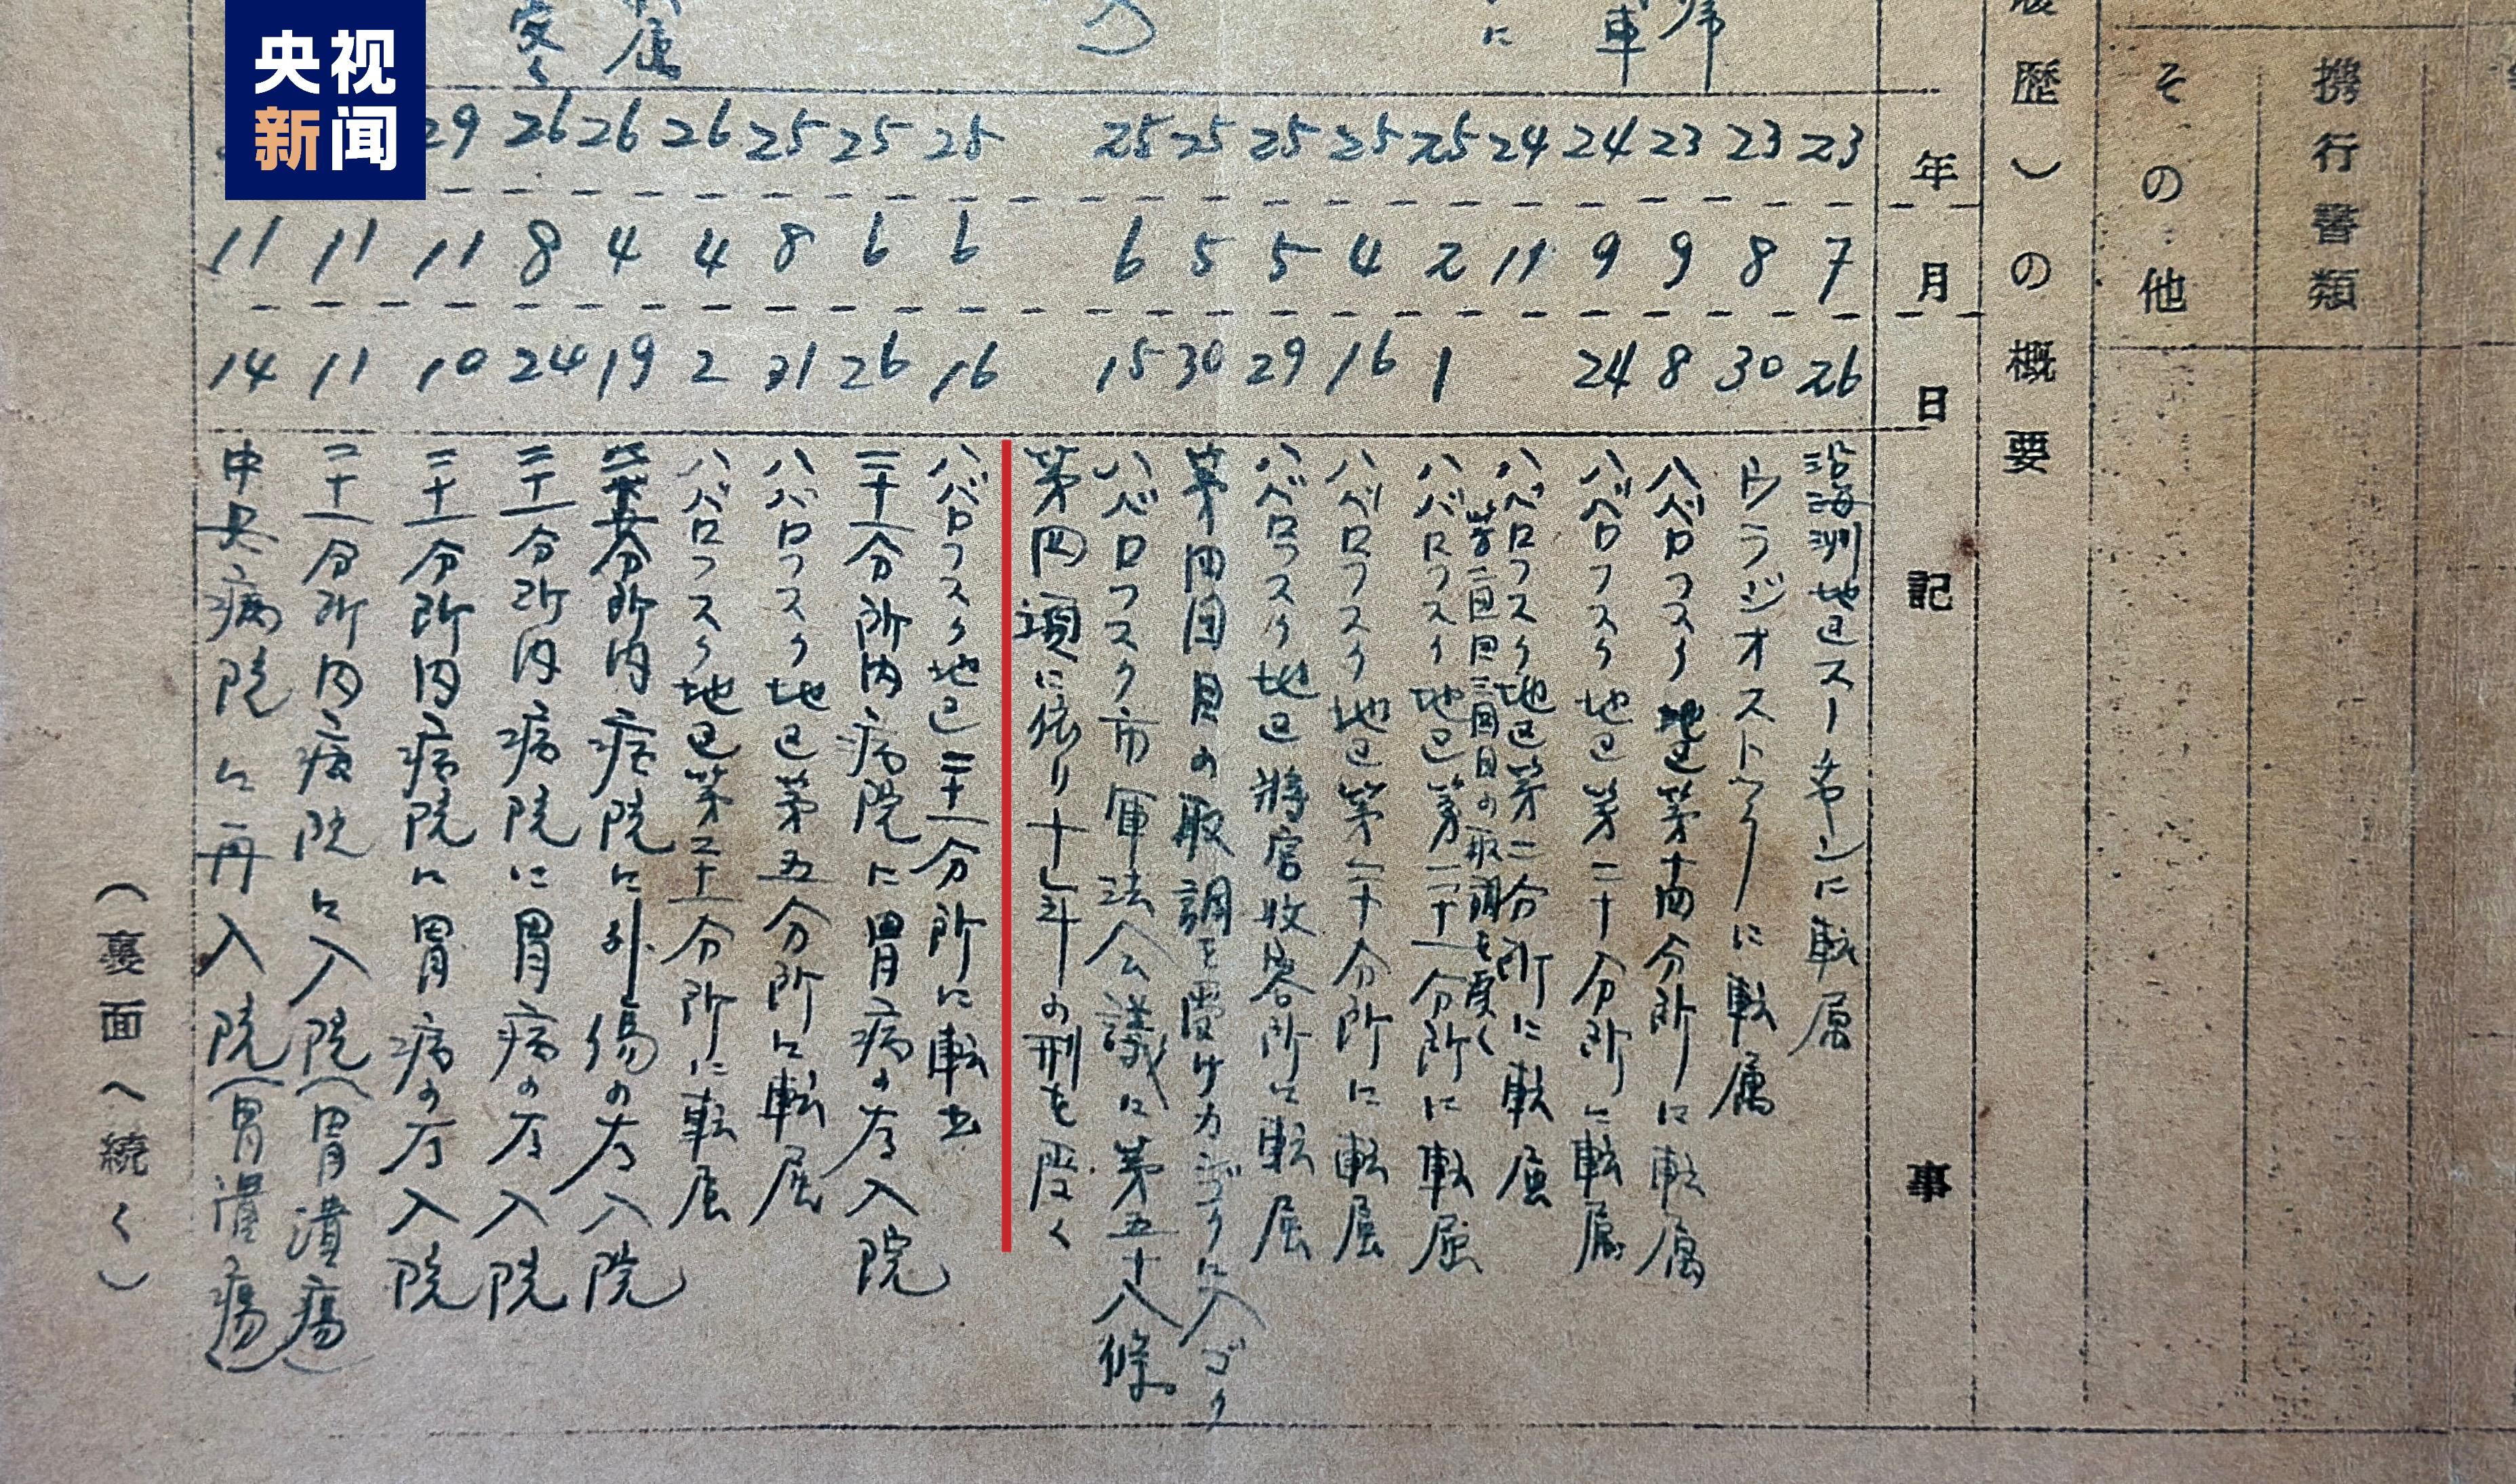 央视
新闻
携行書類
その他
歴)の概要
年月日
記事
23 7 26 沿海洲地区スーチャンに転属
23 8 30 ウラジオストックに転属
23 9 8 ハバロフスク地区第十四分所に転属
24 9 24 ハバロフスク地区第二十分所に転属
24 11 ハバロフスク地区第二分所に転属
第二回目三回目の取調を受く
25 2 1 ハバロフスク地区第二十一分所に転属
25 4 16 ハバロフスク地区第二十分所に転属
25 5 29 ハバロフスク地区将官收容所に転属
25 5 30 第四回目の取調を受け
25 6 15 ハバロフスク市軍法会議に第五十八條
第四項に依り十年の刑を受く
25 6 16 ハバロフスク地区二十一分所に転出
25 6 26 二十一分所内病院に胃病の為入院
25 8 31 ハバロフスク地区第五分所に転属
26 4 2 ハバロフスク地区第二十一分所に転属
26 4 19 分所内病院に外傷の為入院
26 8 24 二十一分所内病院に胃病の為入院
29 11 10 二十一分所内病院に胃病の為入院
11 11 二十一分所内病院に入院(胃潰瘍)
11 14 中央病院に再入院(胃潰瘍)
(裏面へ続く)